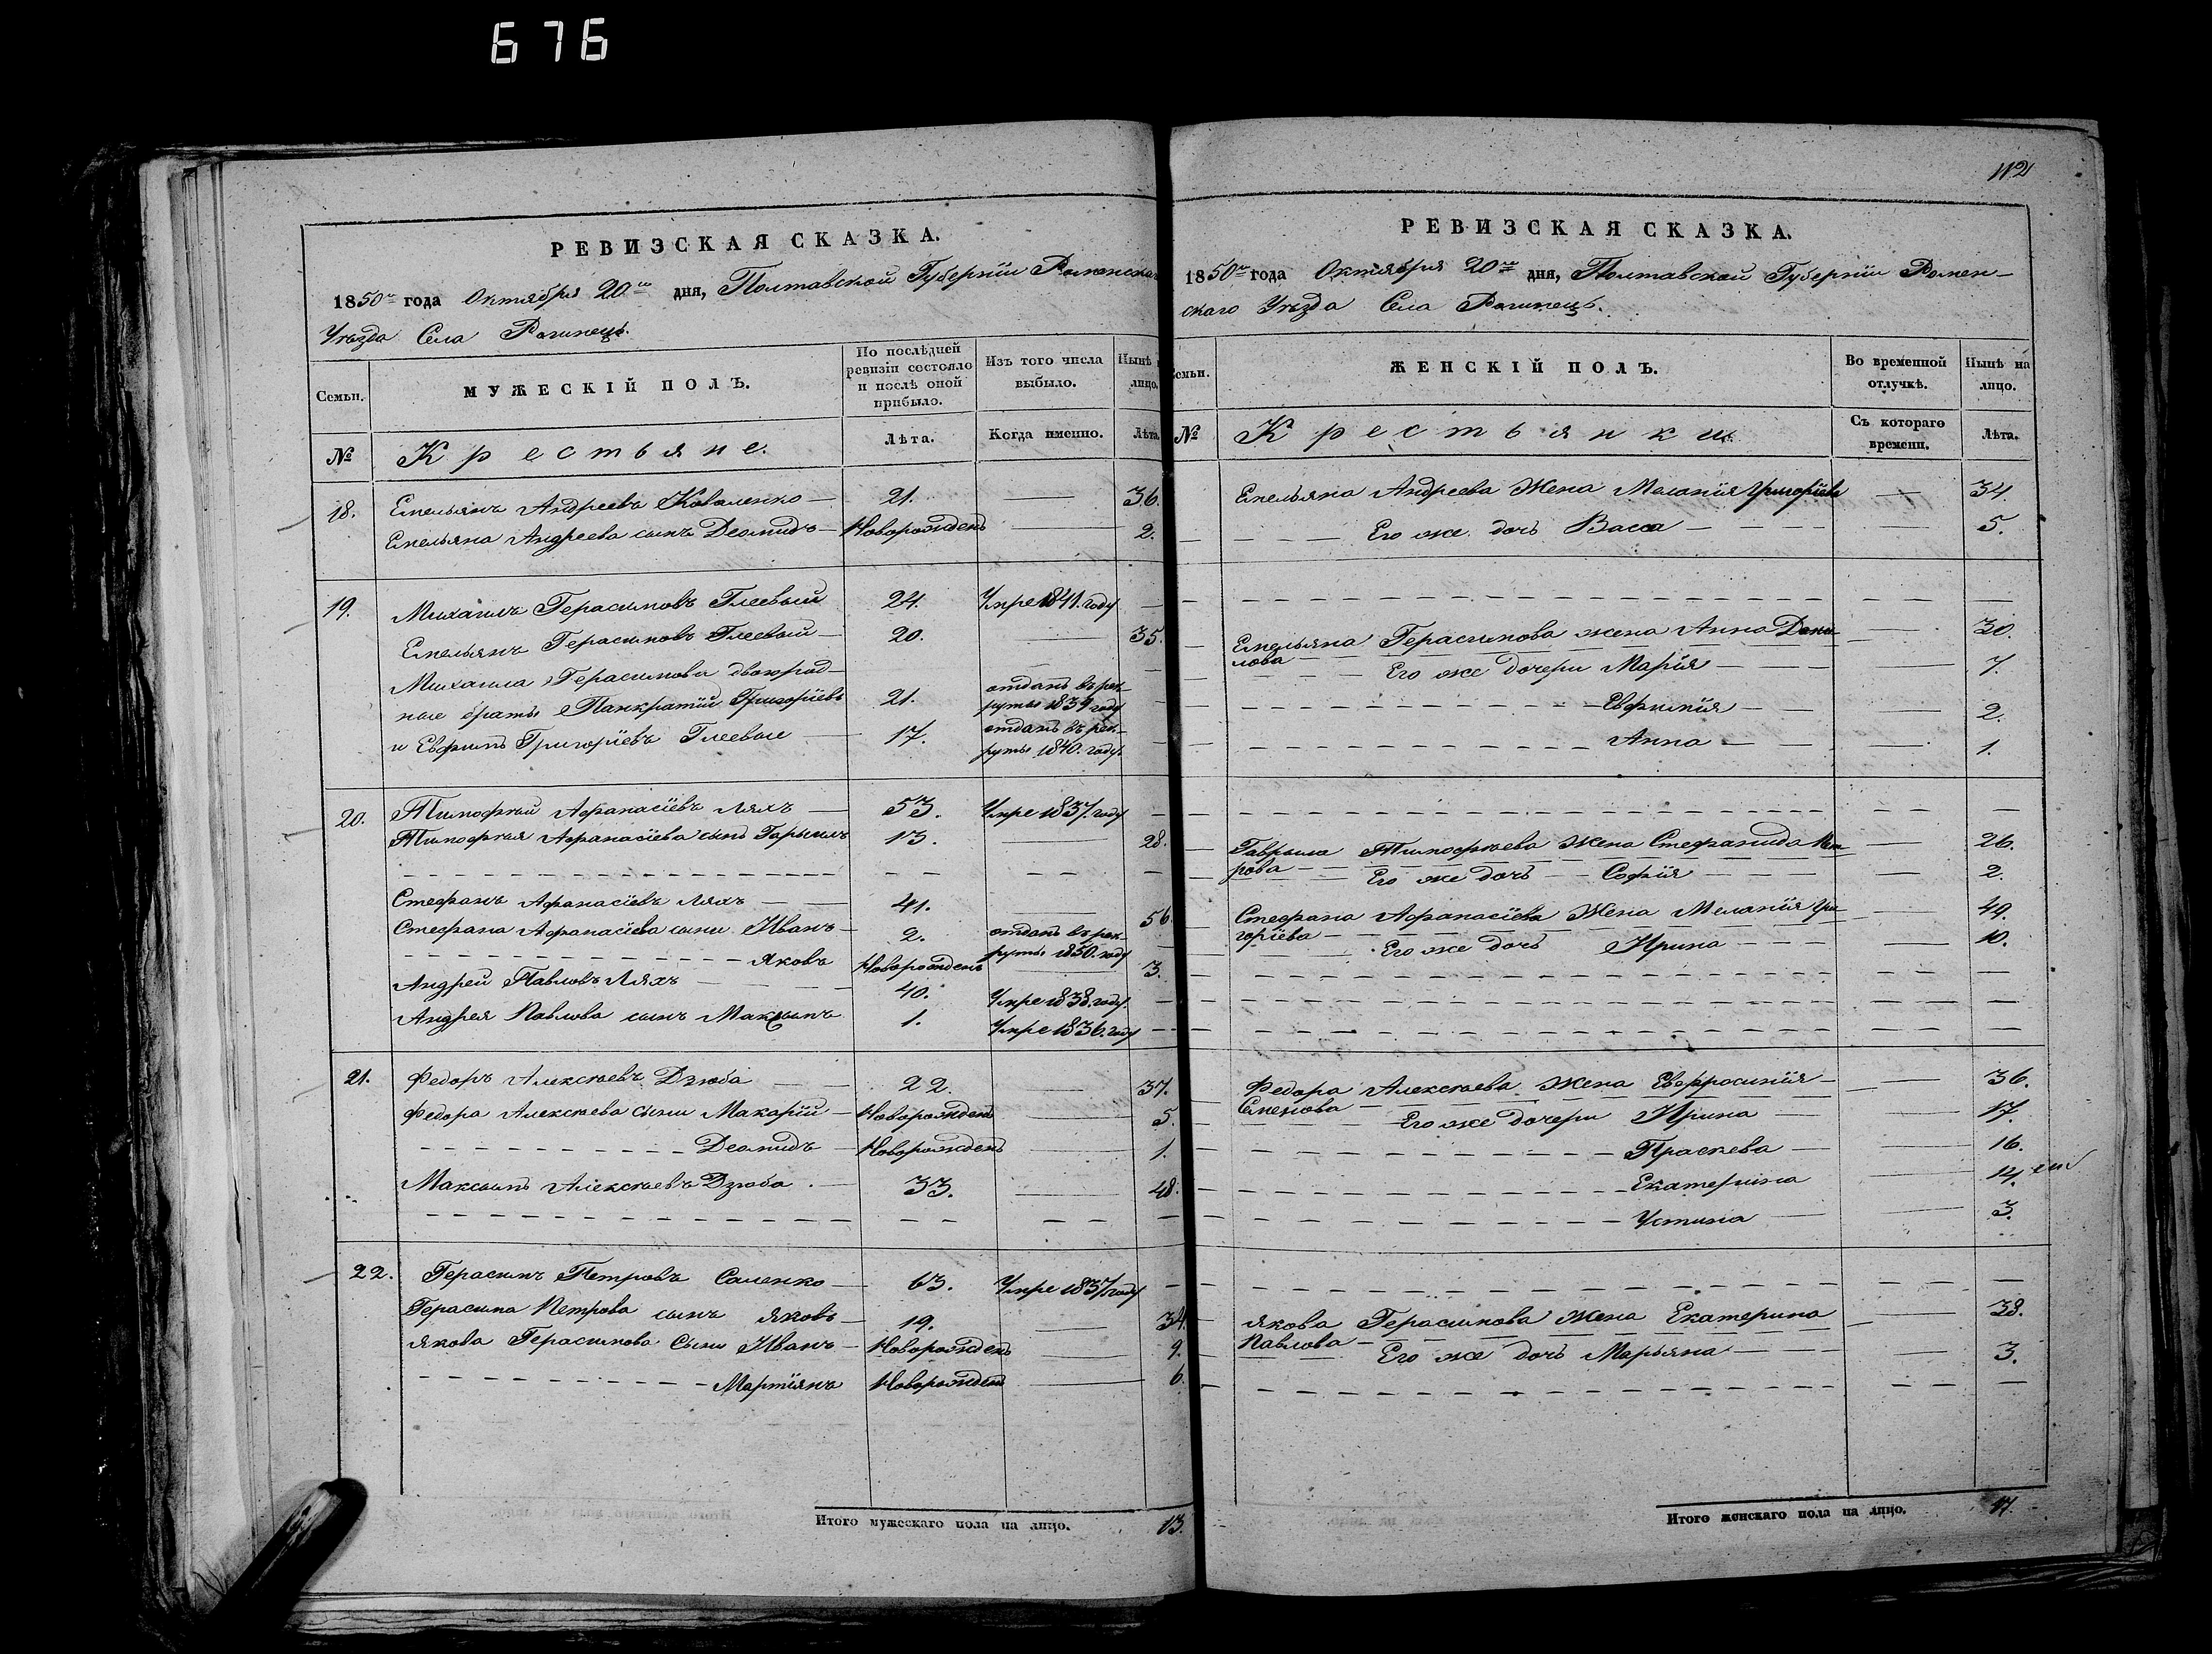 676
РЕВИЗСКАЯ СКАЗКА.
1850го года Октября 20го дня, Полтавской Губернiи Роменскаго
Уѣзда Села Рогинецъ.
Семьи.
МУЖЕСКIЙ ПОЛЪ.
По послѣдней ревизiи состояло и послѣ оной прибыло.
Изъ того числа выбыло.
Нынѣ на лицо.
№
Крестьяне.
Лѣта.
Когда именно.
Лѣта.
18. Емельянъ Андреевъ Коваленко — 21. — 36.
Емельяна Андреева сынъ Деомидъ — Новорожденъ — 2.
19. Михаилъ Герасимовъ Глевый 24. Умре 1841. году —
Емельянъ Герасимовъ Глевый — 20. — 35.
Михаила Герасимова двоюрод-
ные братья Панкратiй Григорiевъ 21. отданъ въ рек-
руты 1839 году —
и Евфимъ Григорiевъ Глевые — 17. отданъ въ рек-
руты 1840. году. —
20. Тимофѣй Афанасiевъ Ляхъ — 53. Умре 1837. году —
Тимофѣя Афанасiева сынъ Гаврыилъ 13. — 28.
Стефанъ Афанасiевъ Ляхъ — 41. — 56.
Стефана Афанасiева сыни Иванъ — 2. отданъ въ рек-
руты 1850. году —
Яковъ Новорожденъ — 3.
Андрей Павловъ Ляхъ — 40. Умре 1838. году. —
Андрея Павлова сынъ Максимъ 1. Умре 1836. году —
21. Федоръ Алексѣевъ Дзюба — 22. — 37.
Федора Алексѣева сыни Макарiй — Новорожденъ — 5.
Деомидъ — Новорожденъ — 1.
Максимъ Алексѣевъ Дзюба — 33. — 48.
22. Герасимъ Петровъ Саленко — 63. Умре 1837 году —
Герасима Петрова сынъ Яковъ — 19. — 34.
Якова Герасимова Сыни Иванъ — Новорожденъ — 9.
Мартiянъ Новорожденъ — 6.
Итого мужескаго пола на лицо. 13.
112
РЕВИЗСКАЯ СКАЗКА.
1850го года Октября 20го дня, Полтавской Губернiи Ромен-
скаго Уѣзда Села Рогинецъ.
Семьи.
ЖЕНСКIЙ ПОЛЪ.
Во временной отлучкѣ.
Нынѣ на лицо.
№
Крестьянки.
Съ котораго времени.
Лѣта.
Емельяна Андреева Жена Меланiя Григорiева — 34.
Его же дочь Васса — 5.
Емельяна Герасимова жена Анна Дани- — 30.
лова —
Его же дочери Марiя — 7.
Евфимiя — 2.
Анна — 1.
Гаврыила Тимофѣева Жена Стефанида Пет- — 26.
рова —
Его же дочь — Софiя — 2.
Стефана Афанасiева Жена Меланiя Гри- — 49.
горiева —
Его же дочь Ирина — 10.
Федора Алексѣева Жена Евфросинiя — 36.
Семенова —
Его же дочери Ирина — 17.
Праскева — 16.
Екатерина — 14.
Устина — 3.
Якова Герасимова Жена Екатерина — 38.
Павлова —
Его же дочь Марьяна — 3.
Итого женскаго пола на лицо. 17.